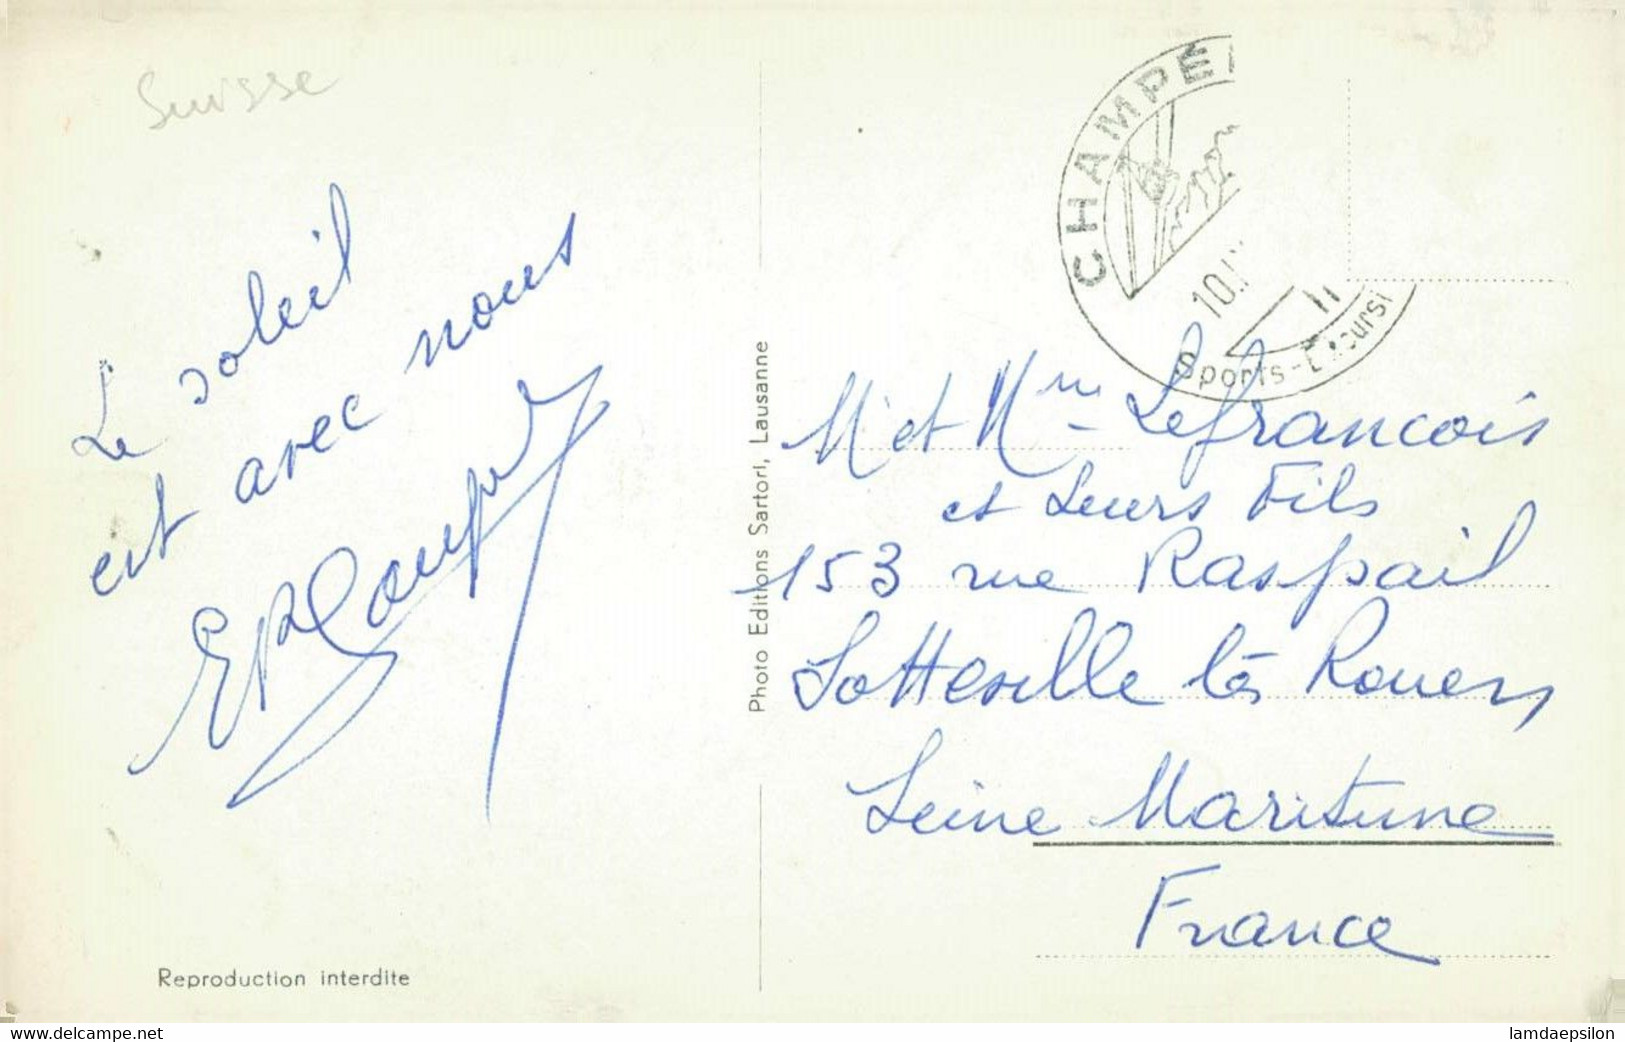 Suisse
Le soleil
est avec nous
Reproduction interdite
Photo Editions Sartori, Lausanne
CHAMPE
10.
Sports-Excursi
M et Mme Lefrancois
et Leurs Fils
153 rue Raspail
Sotteville lès Rouen
Seine Maritime
France
www.delcampe.net
lamdaepsilon